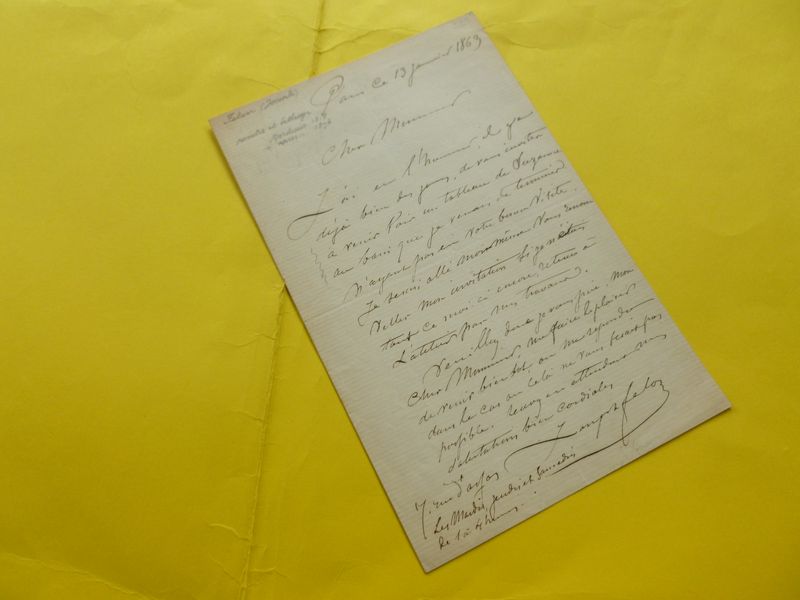 Paris ce 13 janvier 1863
Cher Monsieur
J'ai eu l'honneur, il y a
déjà bien des jours, de vous inviter
à venir voir un tableau de Suzanne
au bain que je venais de terminer
N'ayant pas eu votre bonne visite,
Je serais allé moi même Vous renou
veller mon invitation si je n'étais
tout ce mois ci encore, retenu à
L'atelier par mes travaux.
Veuillez donc je vous prie, Mon
Cher Monsieur, me faire le plaisir
de venir bientôt, ou me répondre
dans le cas où cela ne vous serait pas
possible. recevez en attendant mes
salutations bien cordiales
7, rue d'assas
Les Mardis, jeudis et Samedis
de 1 à 4 h